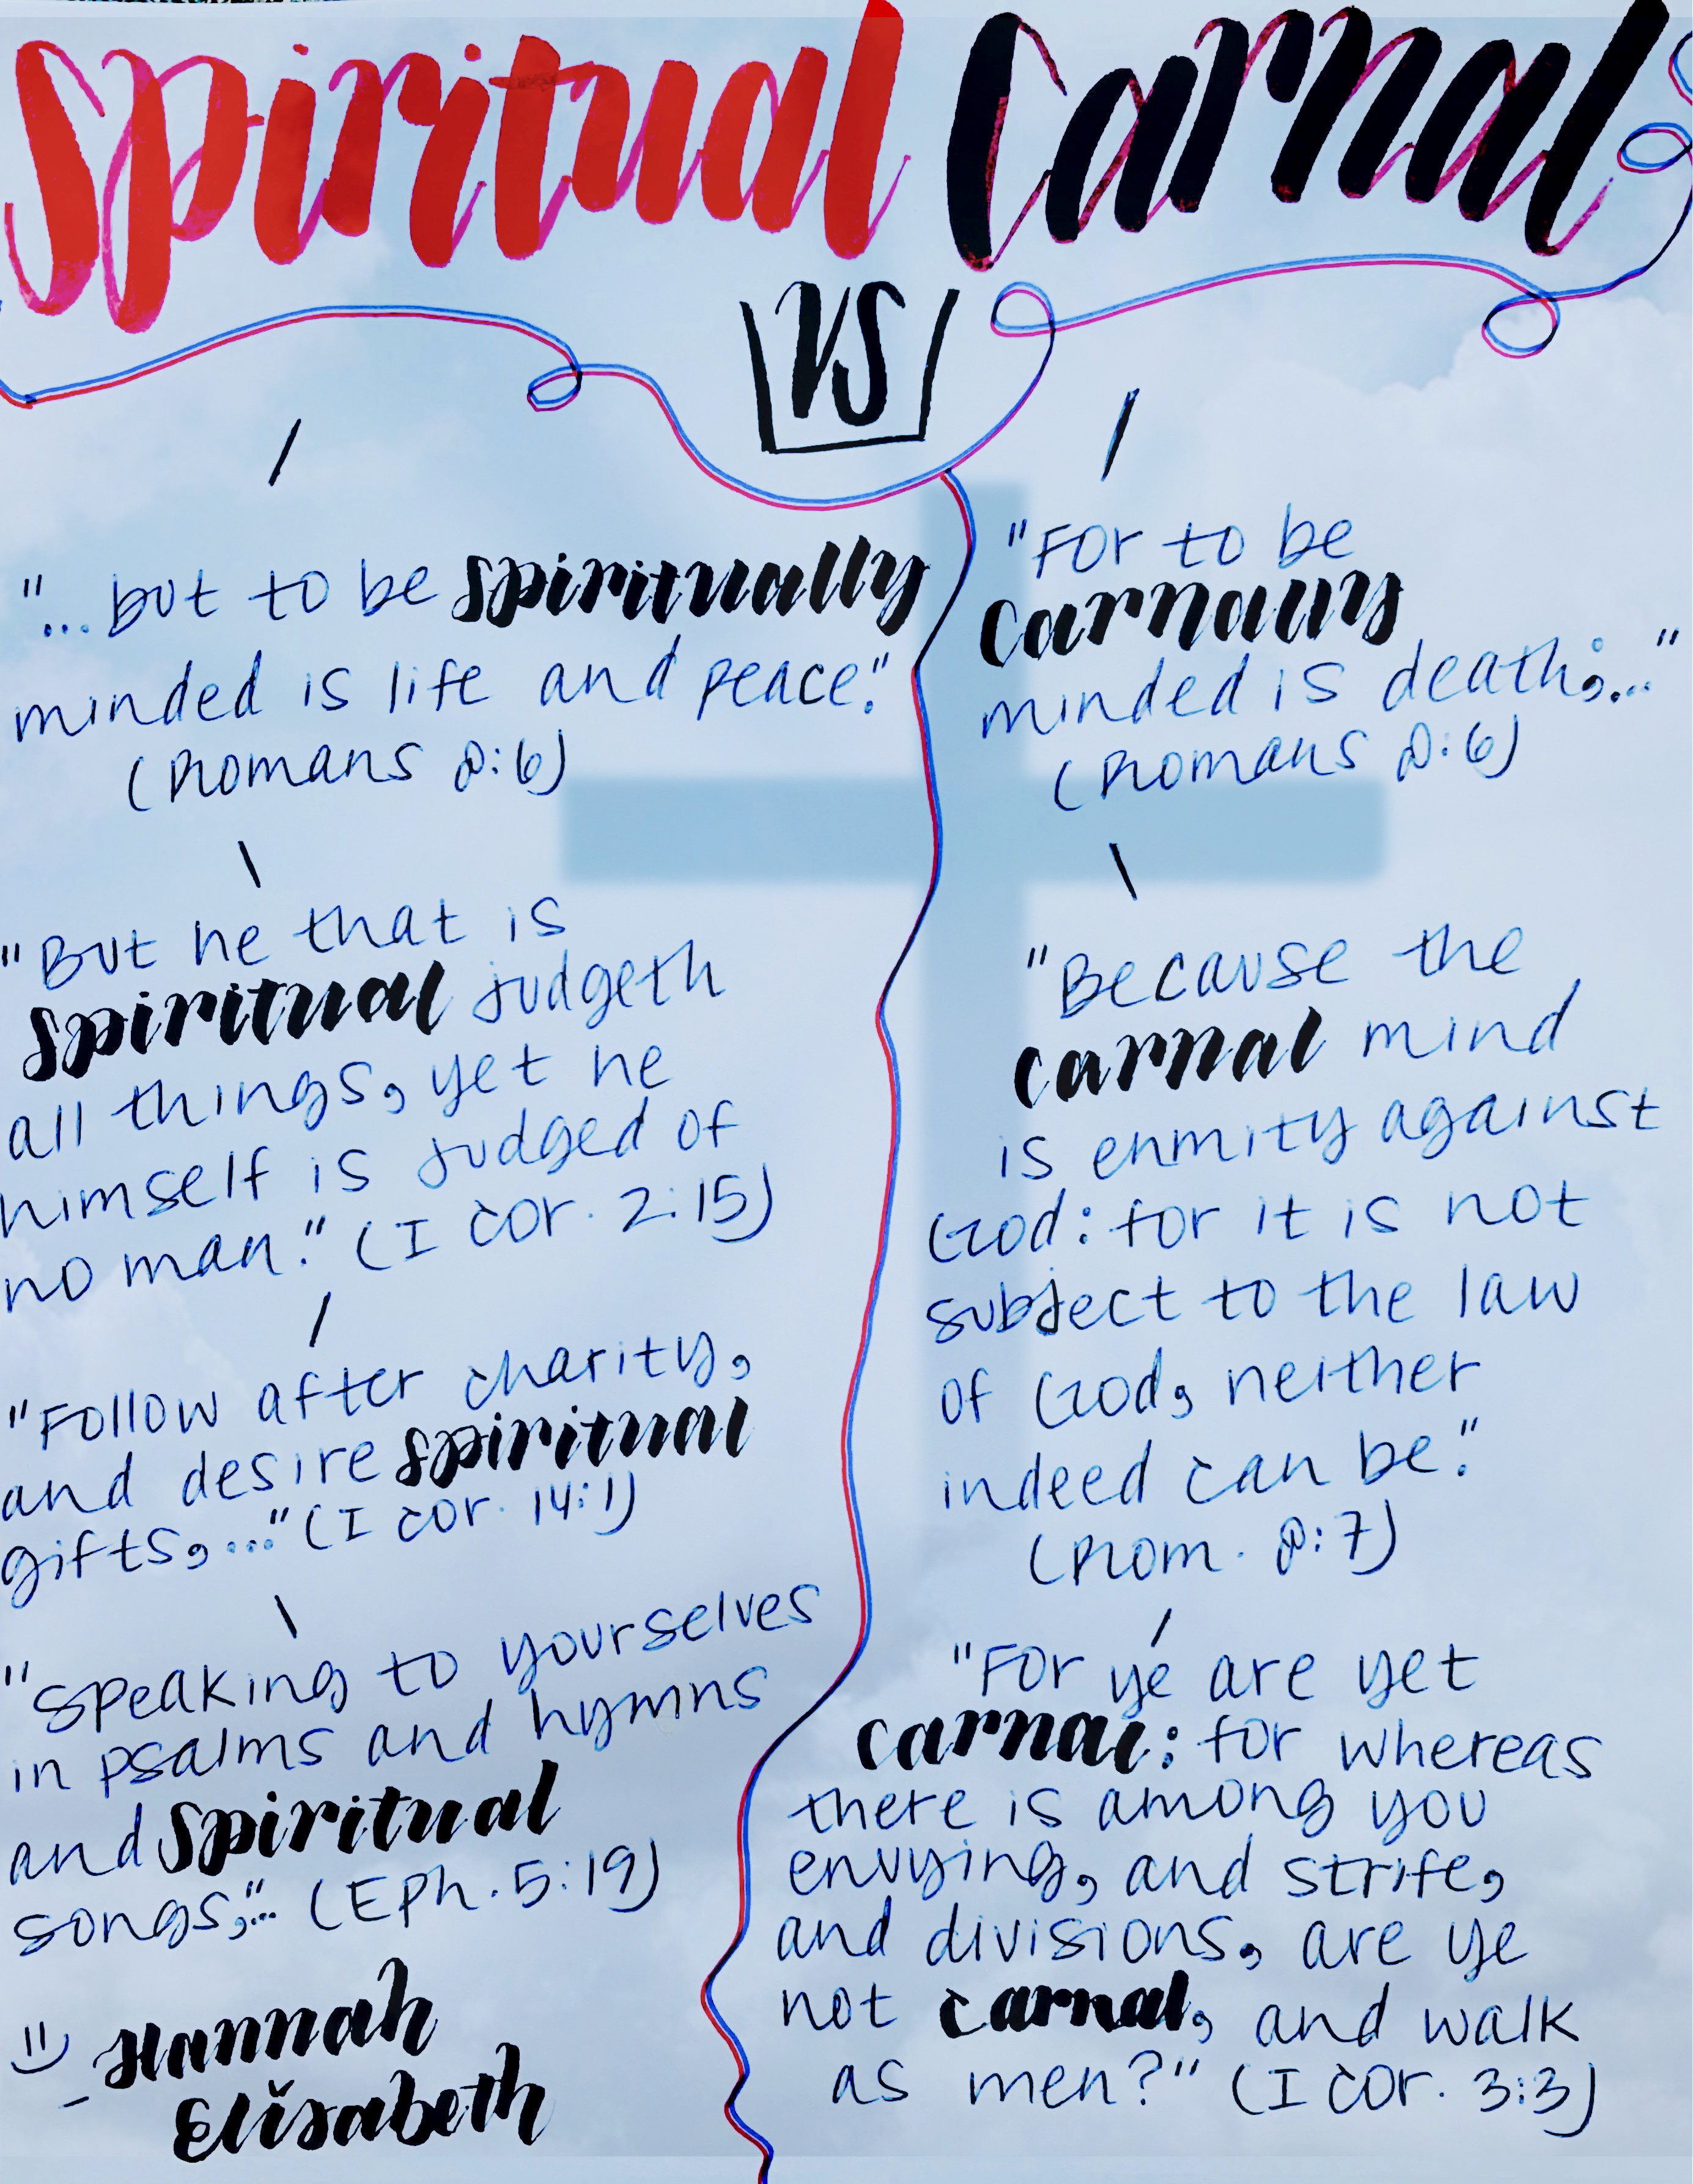 Spiritual
VS
Carnal
"...but to be spiritually
minded is life and peace."
(Romans 8:6)
"But he that is
spiritual judgeth
all things, yet he
himself is judged of
no man." (I Cor. 2:15)
"Follow after charity,
and desire spiritual
gifts,..." (I Cor. 14:1)
"Speaking to yourselves
in psalms and hymns
and spiritual
songs,..." (Eph. 5:19)
=) - Hannah
Elisabeth
"For to be
carnally
minded is death;..."
(Romans 8:6)
"Because the
carnal mind
is enmity against
God: for it is not
subject to the law
of God, neither
indeed can be."
(Rom. 8:7)
"For ye are yet
carnal: for whereas
there is among you
envying, and strife,
and divisions, are ye
not carnal, and walk
as men?" (I Cor. 3:3)